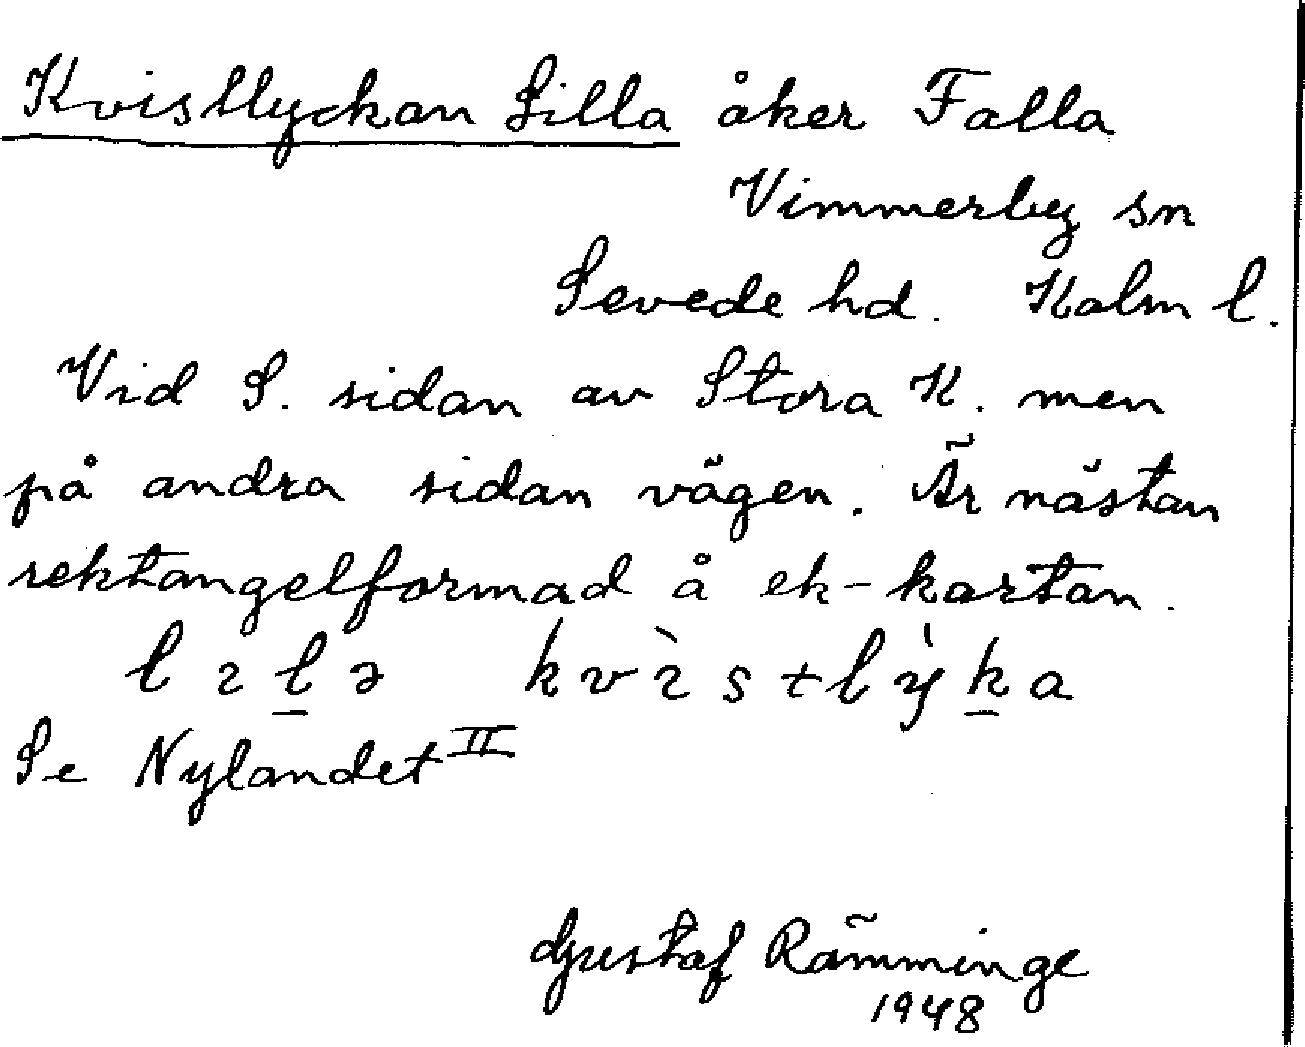 Kvistlyckan Lilla åker Falla
Vimmerby sn
Sevede hd. Kalm l.
Vid S. sidan av Stora K. men
på andra sidan vägen. Är nästan
rektangelformad å ek-kartan.
lɩl̲ə kvɩ̀stlỳk̲a
Se Nylandet II
Gustaf Rämminge
1948